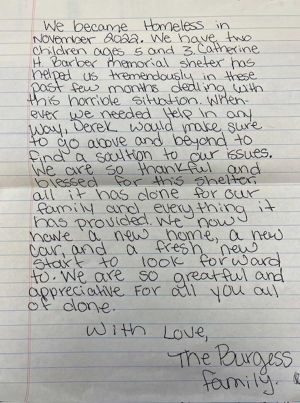 We became Homeless in
November 2022. We have two
children ages 5 and 3. Catherine
H. Barber Memorial sheter has
helped us tremendously in these
past few months dealing with
this horrible situation. When-
ever we needed Help in any
way, Derek would make sure
to go above and beyond to
find a soultion to our issues.
We are so thankful and
blessed for this shelter
all it has done for our
family and everything it
has provided. We now
have a new home, a new
car, and a fresh new
start to look forward
to. We are so greatful and
appreciative For all you all
of done.
With Love,
The Burgess
family.